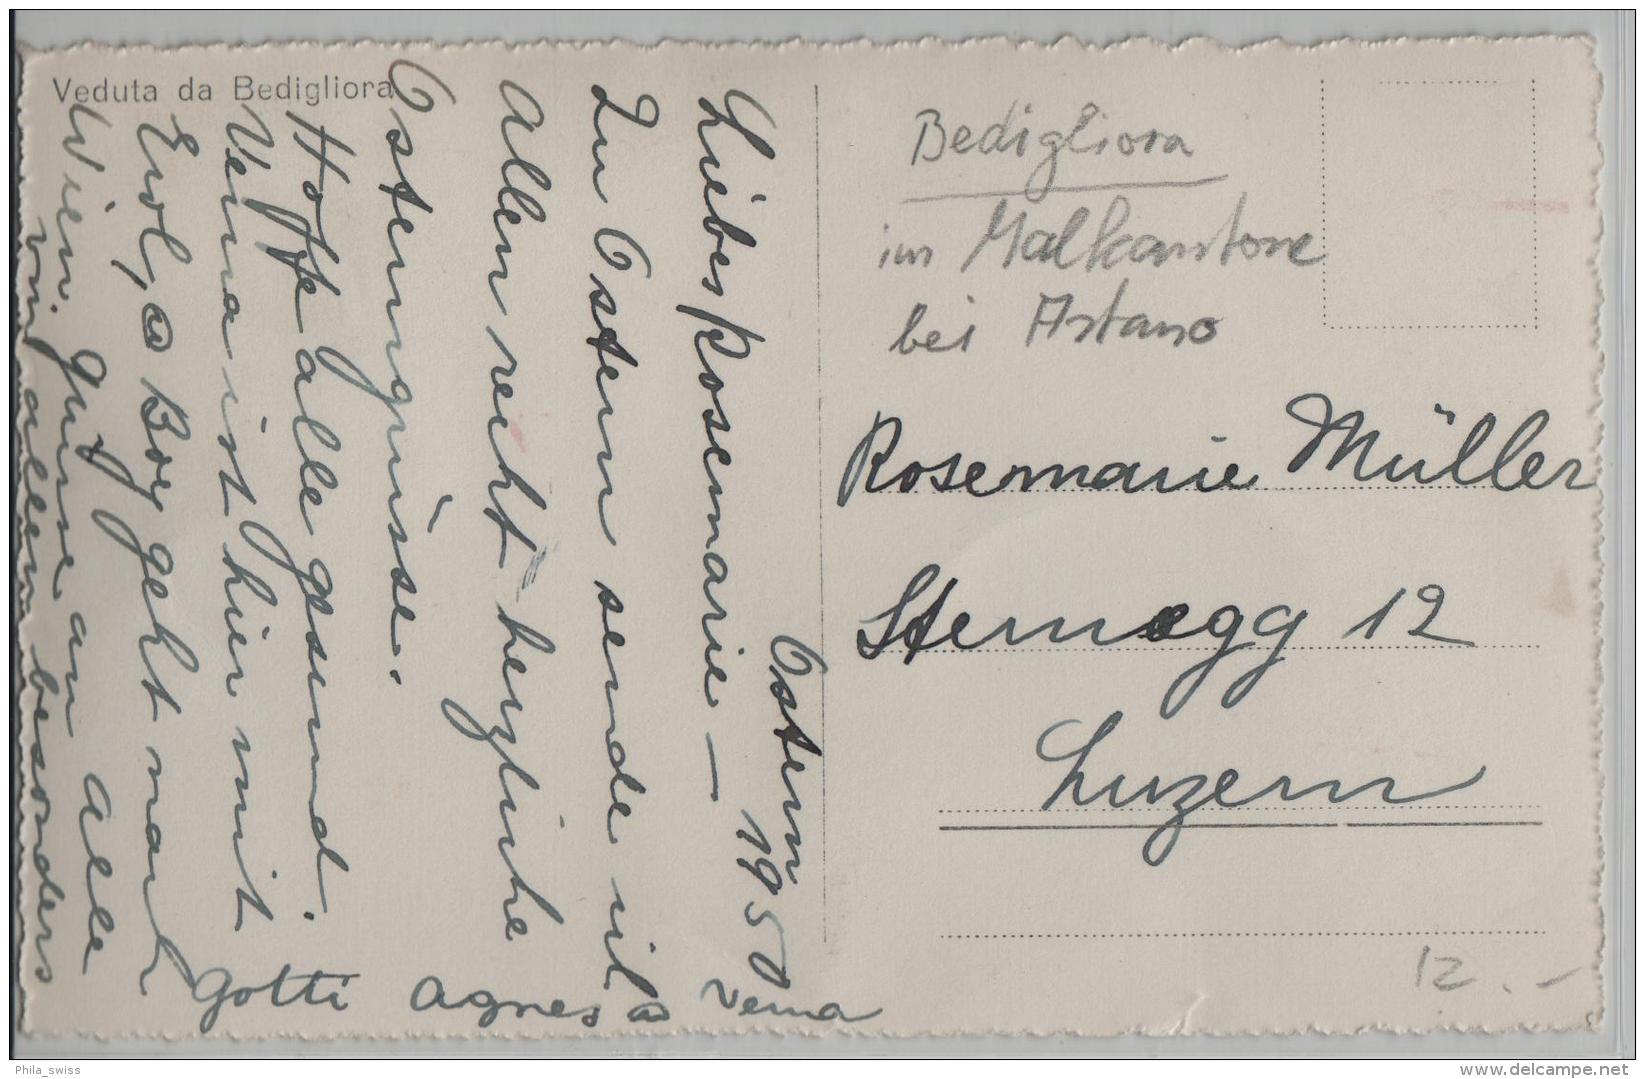 Veduta da Bedigliora
Ostern
1950
Liebes Rosemarie —
Zu Ostern sende ich
Allen recht herzliche
Ostergrüsse.
Hoffe alle gsund.
Verena ist hier mit
Erol, a Boy geht nach
Wien. Grüsse an alle
von allem besonders
Gotti Agnes & Verena
Bedigliora
im Malkantone
bei Astano
Rosemarie Müller
Sternegg 12
Luzern
12.-
Phila_swiss
www.delcampe.net